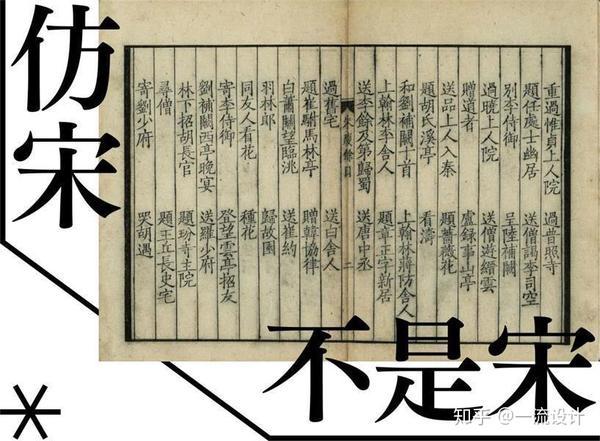 仿宋
重過惟貞上人院 過普照寺
題任處士幽居 送僧謁李司空
別李侍御 呈陸補闕
過曉上人院 送僧遊縉雲
贈道者 盧録事山亭
送品上人入秦 題薔薇花
題胡氏溪亭 看濤
和劉補闕 十首 上翰林蔣防舍人
上翰林李舍人 題章正字新居
送李餘及第歸蜀 送唐中丞
朱慶餘目 二
過舊宅 送白舍人
題崔駙馬林亭 贈韓協律
白蕭關望臨洮 送崔約
羽林郎 歸故園
同友人看花 種花
寄李侍御 登望雲亭招友
劉補闕西亭晚宴 送羅少府
林下招胡長官 題玢寺主院
尋僧 題王丘長史宅
寄劉少府 哭胡遇
不是宋
知乎 @一流设计